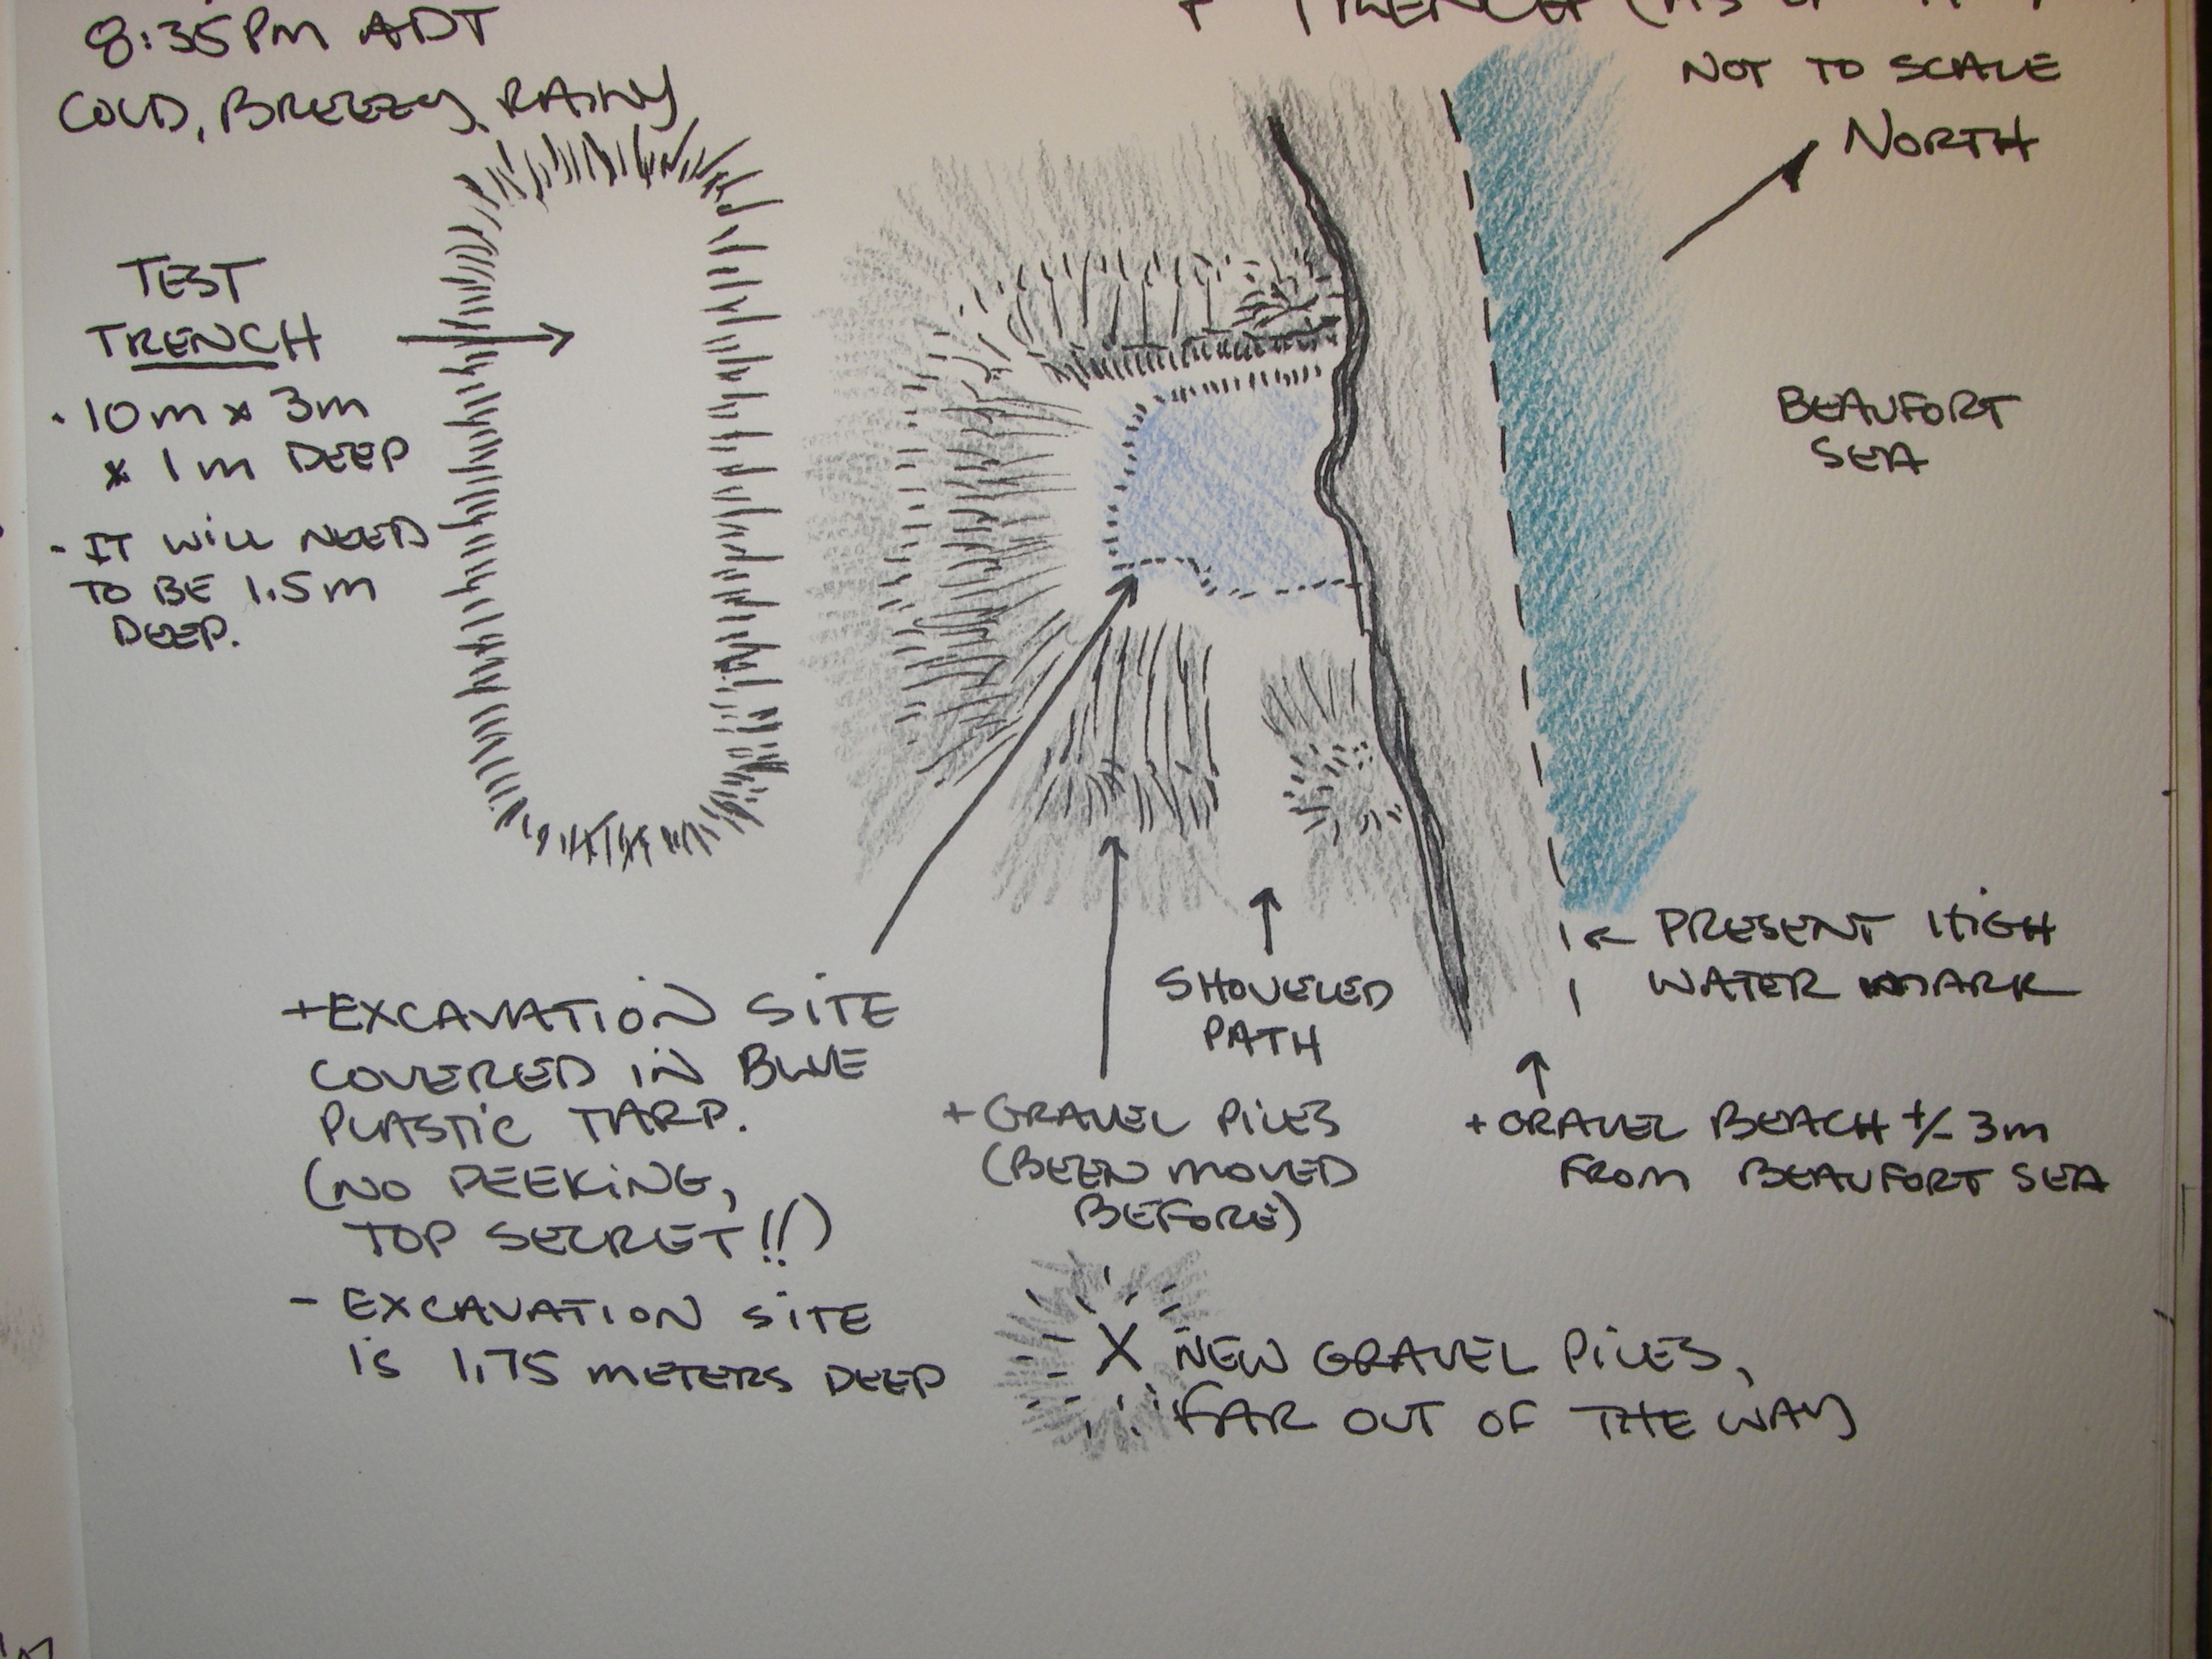 8:35PM ADT
COLD, BREEZY, RAINY
TRENCH
NOT TO SCALE
NORTH
TEST
TRENCH
· 10m x 3m
x 1m DEEP
- IT WILL NEED
TO BE 1.5m
DEEP.
BEAUFORT
SEA
PRESENT HIGH
WATER MARK
SHOVELED
PATH
+ EXCAVATION SITE
COVERED IN BLUE
PLASTIC TARP.
(NO PEEKING,
TOP SECRET!!)
- EXCAVATION SITE
IS 1.75 METERS DEEP
+ GRAVEL PILES
(BEEN MOVED
BEFORE)
+ GRAVEL BEACH +/- 3m
FROM BEAUFORT SEA
X NEW GRAVEL PILES,
FAR OUT OF THE WAY